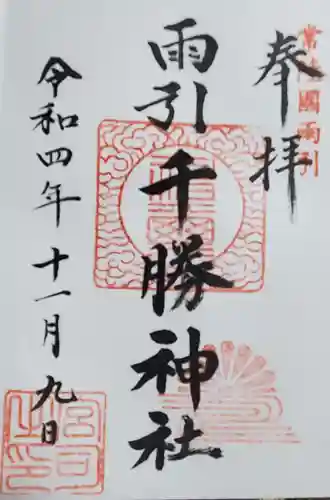 奉拝
常陸國雨引
雨引千勝神社
令和四年十一月九日